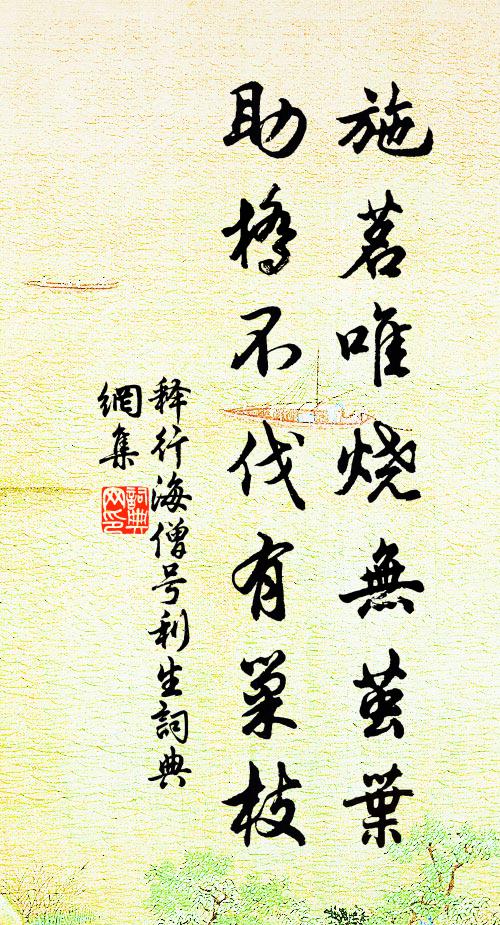 施茗唯烧無茧葉
助桥不伐有巢枝
释行海僧号利生詞典
網集
詞典
网印